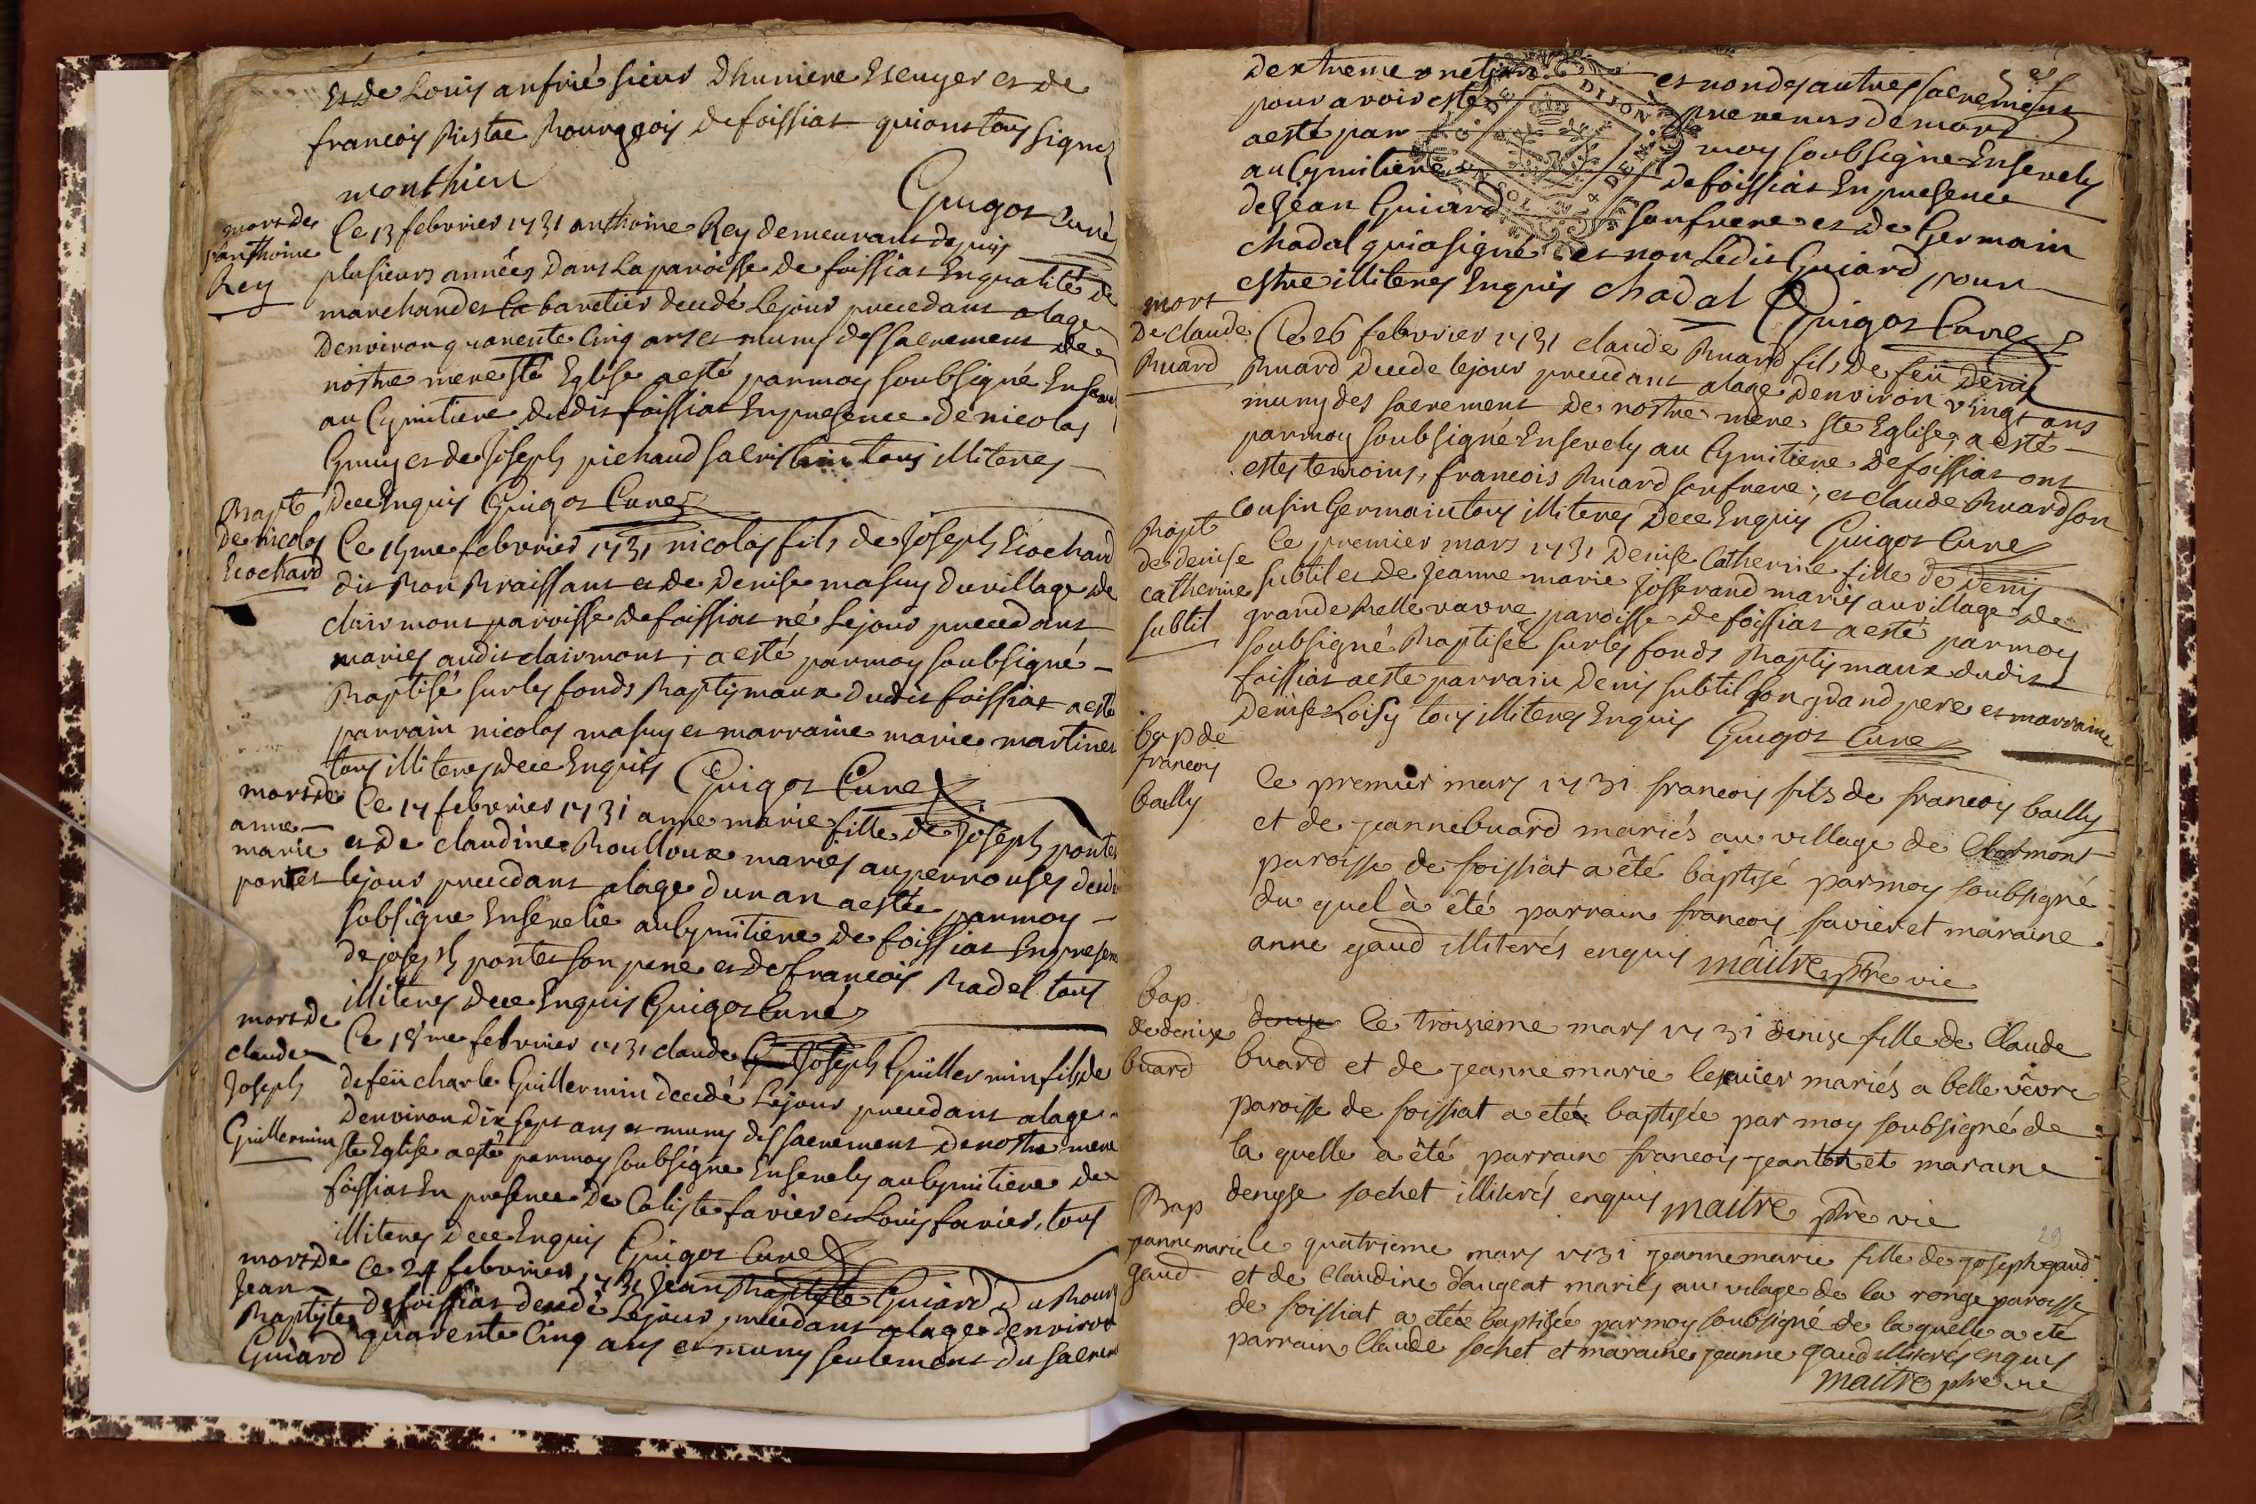 et de Louis anfrié sieur Dhuniere Escuyer et de
francois Ristae Bourgeois de foissiat qui ont tous signez
monthieu
Guigot Curé
mort de
anthoine
Rey
Ce 13 febvrier 1731 anthoine Rey demeurant depuis
plusieurs années dans la paroisse de foissiat En qualité de
marchand et Cabaretier decedé le jour precedant a lage
Denviron quarente Cinq ans et muny des sacrement de
nostre mere ste Eglise a esté par moy soubsigné Ensev
au Cymitiere dudit foissiat En presence de nicolas
Gruuy et de Joseph pichaud sacristain tous illiteres
De ce Enquis Guigot Cure
Bapt
De nicolas
Ecochard
Ce 15me febvrier 1731 nicolas fils de Joseph Ecochard
dit Bon Braissant et de Denise masuy du village de
clairmont paroisse de foissiat né le jour precedant
mariés audit clairmont ; a esté par moy soubsigné
Baptisé sur les fonds Baptismaux dudit foissiat a esté
parrain nicolas masuy et marraine marie martinet
tous illiteres de ce Enquis Guigot Cure
mort de
anne
marie
pontet
Ce 17 febvrier 1731 anne marie fille de Joseph pontet
et de claudine Roulloux mariés au perrouses decede
le jour precedant a lage dun an a estée par moy
sobsigne Ensevelie au Cymitiere de foissiat En presen
de joseph pontet son pere et de francois Radel tous
illiteres de ce Enquis Guigot Curé
mort de
claude
Joseph
Guillermin
Ce 18me febvrier 1731 claude Joseph Guillermin fils de
de feü charle Guillermin decedé le jour precedant a lage
Denviron dix sept ans et muny des sacrement de nostre mere
ste Eglise a esté par moy soubsigne Ensevely au Cymitiere de
foissiat En presence de Caliste favier et Louis favier, tous
illiteres de ce Enquis Guigot Cure
mort de
Jean
Baptiste
Guiard
Ce 24 febvrier 1731 Jean Baptiste Guiard du Bourg
de foissiat decedé le jour precedant a lage denviron
quarente Cinq ans et muny seulement du sacrem
Dextreme onction et non des autres sacrements
pour avoir esté prevenus de mort
a esté par moy soubsigne Ensevely
au Cymitiere de foissiat En presence
de Jean Guiard son frere et de Germain
chadal qui a signé et non Ledit Guiard pour
estre illiteres Enquis chadal Guigot Cure
DIJON
mort
De claude
Buard
Ce 26 febvrier 1731 claude Buard fils de feü Denis
Buard decede le jour precedant a lage denviron vingt ans
muny des sacrement de nostre mere ste Eglise, a esté
par moy soubsigné Ensevely au Cymitiere de foissiat ont
estes temoins, francois Buard son frere, et claude Buard son
cousin Germain tous illiteres De ce Enquis Guigot Cure
Bapt
de denise
catherine
subtil
Ce premier mars 1731 Denise Catherine fille de Denis
subtil et de Jeanne marie Josserand mariés au village de
grande Belle vavre paroisse de foissiat a esté par moy
soubsigné Baptisée sur les fonds Baptismaux dudit
foissiat a esté parrain Denis subtil son grand pere et marraine
Denise Loisy tous illiteres Enquis Guigot Cure
bap de
francois
bailly
Ce premier mars 1731 francois fils de francois bailly
et de jeanne buard mariés au village de Clermont
paroisse de foissiat a été baptisé par moy soubsigné
du quel à été parrain francois favier et maraine
anne gaud illiterés enquis maitre ptre vic
bap
de denise
buard
denise Ce troisième mars 1731 denise fille de Claude
buard et de jeanne marie lesuier mariés a belle vêvre
paroisse de foissiat a eté baptisée par moy soubsigné de
la quelle a été parrain francois jeanton et maraine
denyse sochet illiterés enquis maitre ptre vic
Bap
jannemarie
gaud
le quatrieme mars 1731 jeannemarie fille de joseph gaud
et de Claudine daugeat mariés au vilage de la ronge paroisse
de foissiat a eteé baptisée par moy soubsigné de la quelle a eté
parrain Claude sochet et maraine jeanne gaud illiterés enquis
maitre ptre vic
29